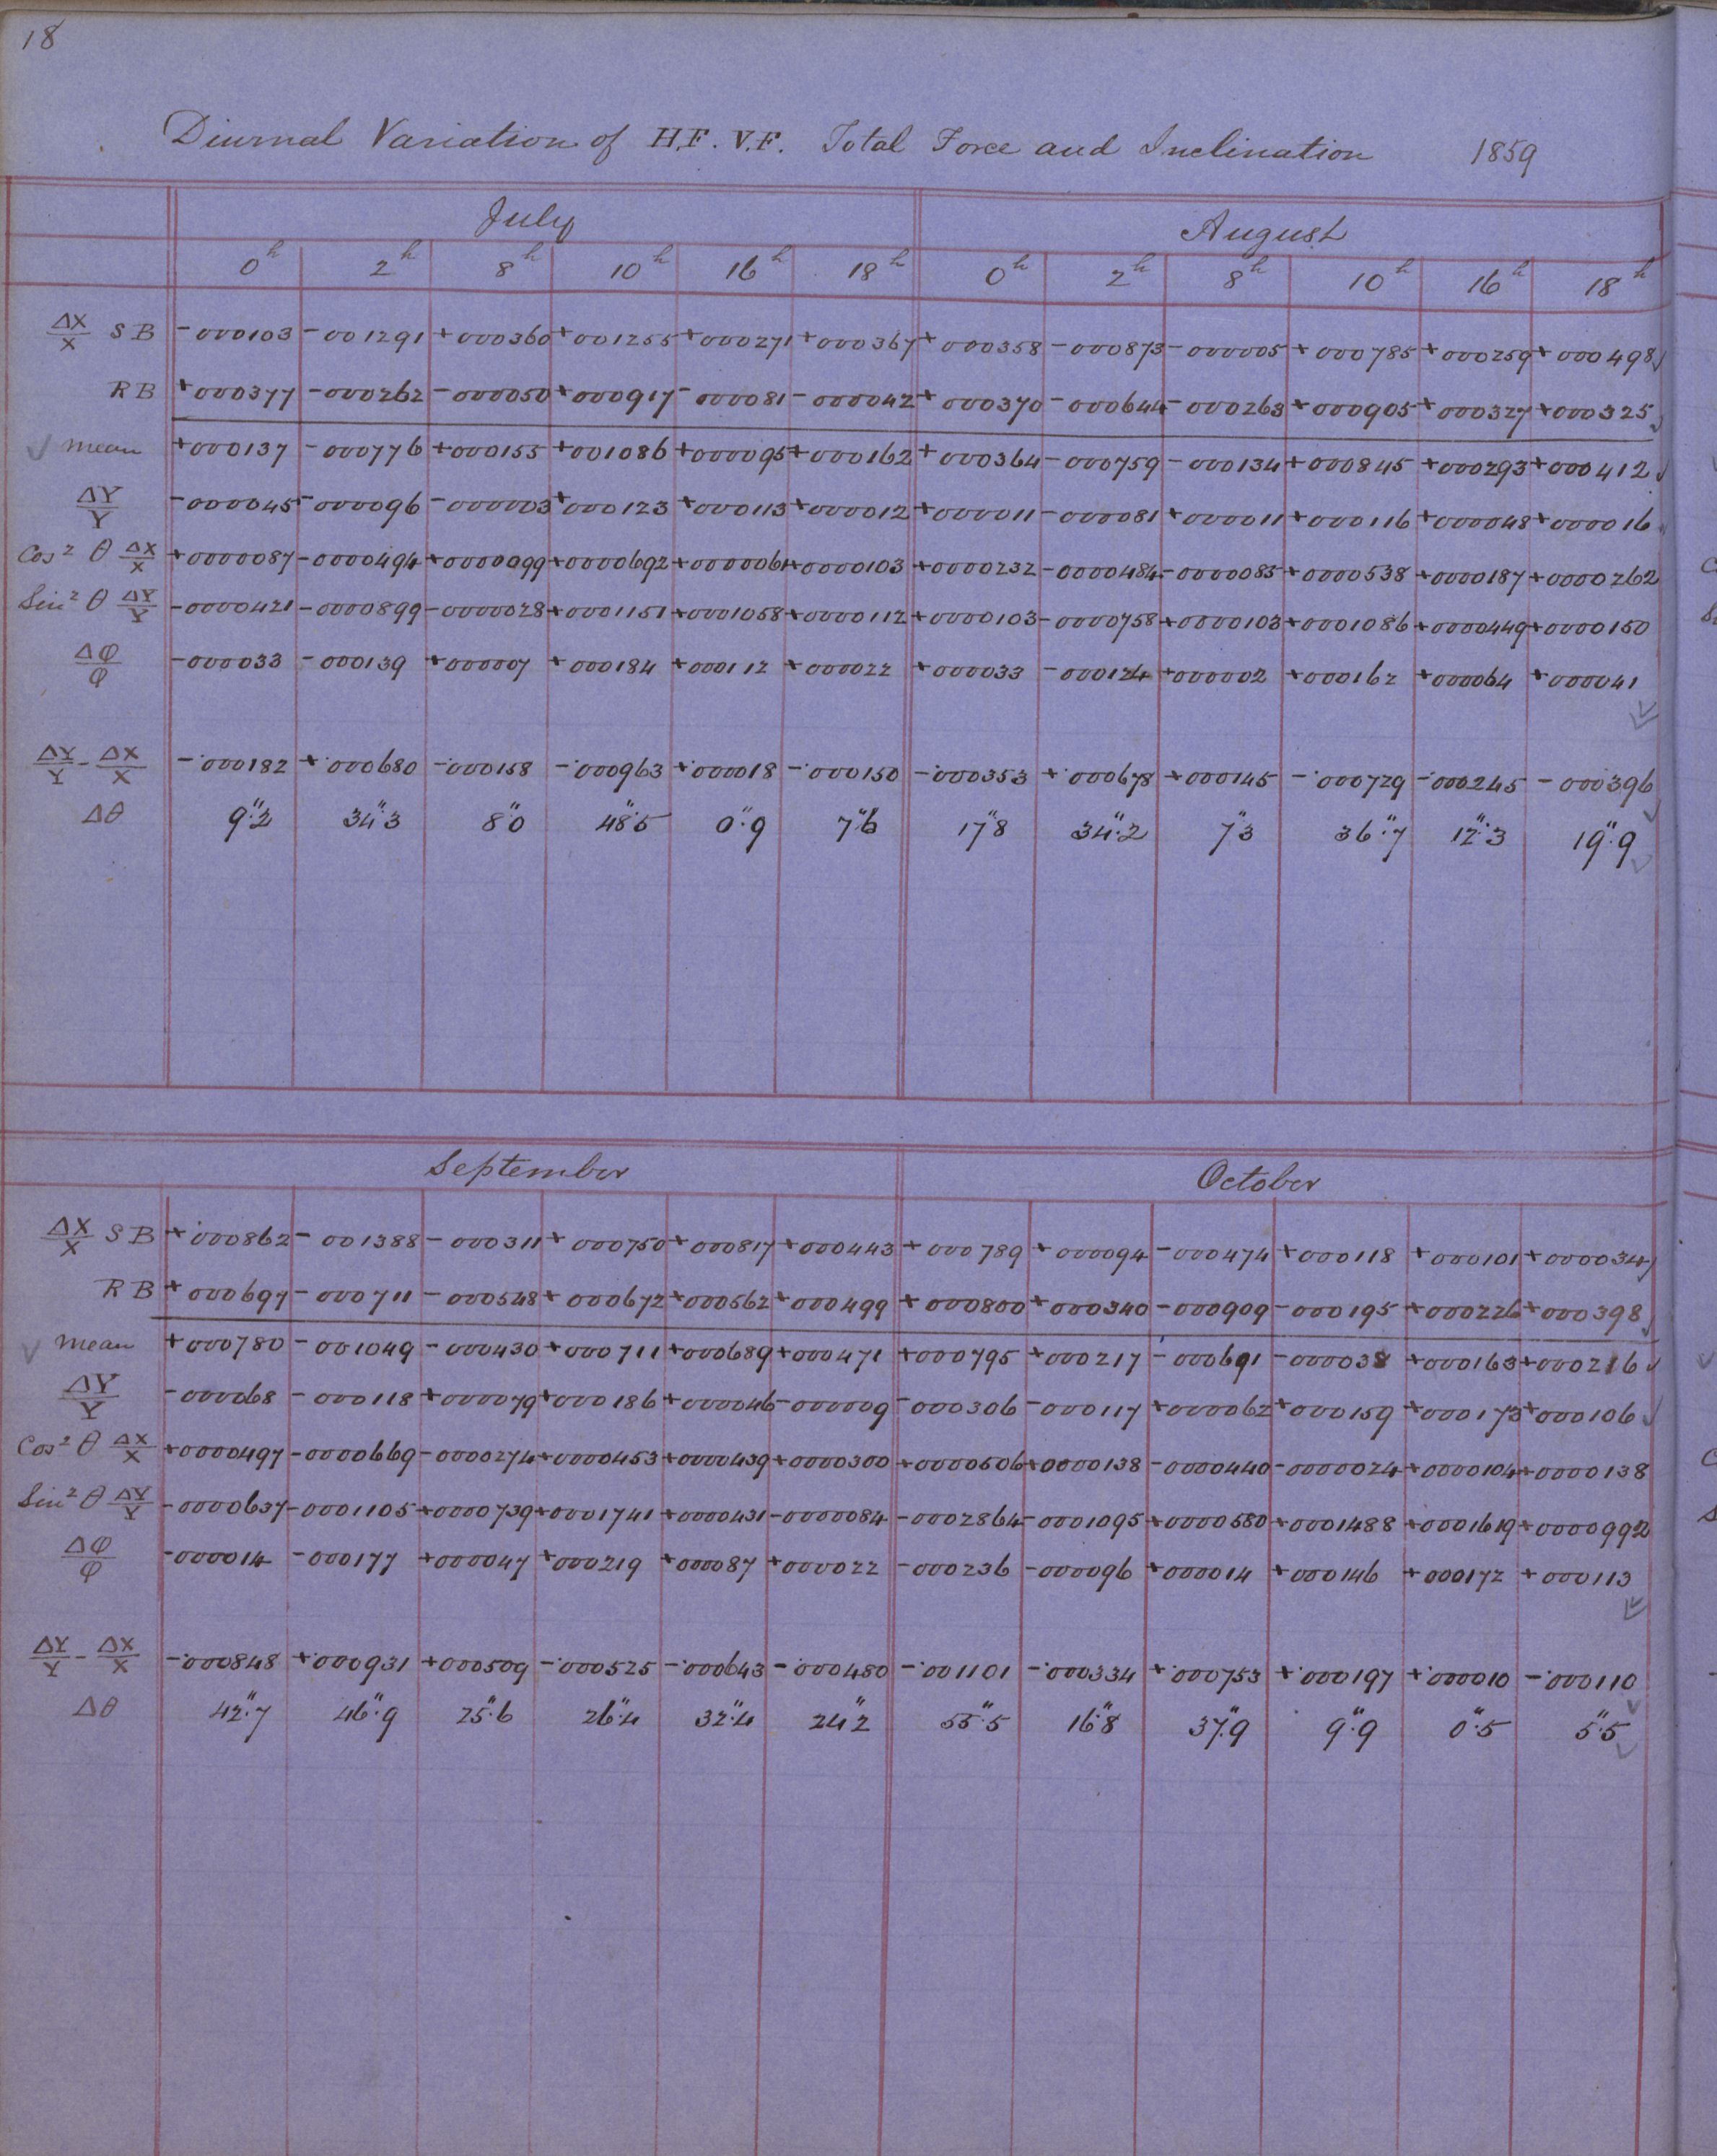 18
Diurnal Variation of H.F. V.F. Total Force and Inclination 1859
July August
0h 2h 8h 10h 16h 18h 0h 2h 8h 10h 16h 18h
ΔX/X SB -000103 -001291 +000360 +001255 +000271 +000367 +000358 -000873 -000005 +000785 +000259 +000498
RB +000377 -000262 -000050 +000917 -000081 -000042 +000370 -000644 -000263 +000905 +000327 +000325
mean +000137 -000776 +000155 +001086 +000095 +000162 +000364 -000759 -000134 +000845 +000293 +000412
ΔY/Y -000045 -000096 -000003 +000123 +000113 +000012 +000011 -000081 +000011 +000116 +000048 +000016
Cos² θ ΔX/X +0000087 -0000494 +0000099 +0000692 +0000061 +0000103 +0000232 -0000484 -0000085 +0000538 +0000187 +0000262
Sin² θ ΔY/Y -0000421 -0000899 -0000028 +0001151 +0001058 +0000112 +0000103 -0000758 +0000103 +0001086 +0000449 +0000150
Δφ/φ -000033 -000139 +000007 +000184 +000112 +000022 +000033 -000124 +000002 +000162 +000064 +000041
ΔY/Y - ΔX/X -·000182 +·000680 -·000158 -·000963 +·000018 -·000150 -·000353 +·000678 +000145 -·000729 -·000245 -000396
Δθ 9".2 34".3 8".0 48".5 0".9 7".6 17".8 34".2 7".3 36".7 12".3 19".9
September October
ΔX/X SB +·000862 -001388 -000311 +000750 +000817 +000443 +000789 +000094 -000474 +000118 +000101 +000034
RB +000697 -000711 -000548 +000672 +000562 +000499 +000800 +000340 -000909 -000195 +000226 +000398
mean +000780 -001049 -000430 +000711 +000689 +000471 +000795 +000217 -000691 -000038 +000163 +000216
ΔY/Y -000068 -000118 +000079 +000186 +000046 -000009 -000306 -000117 +000062 +000159 +000173 +000106
Cos² θ ΔX/X +0000497 -0000669 -0000274 +0000453 +0000439 +0000300 +0000506 +0000138 -0000440 -0000024 +0000104 +0000138
Sin² θ ΔY/Y -0000637 -0001105 +0000739 +0001741 +0000431 -0000084 -0002864 -0001095 +0000580 +0001488 +0001619 +0000992
Δφ/φ -000014 -000177 +000047 +000219 +000087 +000022 -000236 -000096 +000014 +000146 +000172 +000113
ΔY/Y - ΔX/X -·000848 +·000931 +000509 -·000525 -·000643 -·000480 -·001101 -·000334 +·000753 +·000197 +·000010 -·000110
Δθ 42".7 46".9 25".6 26".4 32".4 24".2 55".5 16".8 37".9 9".9 0".5 5".5